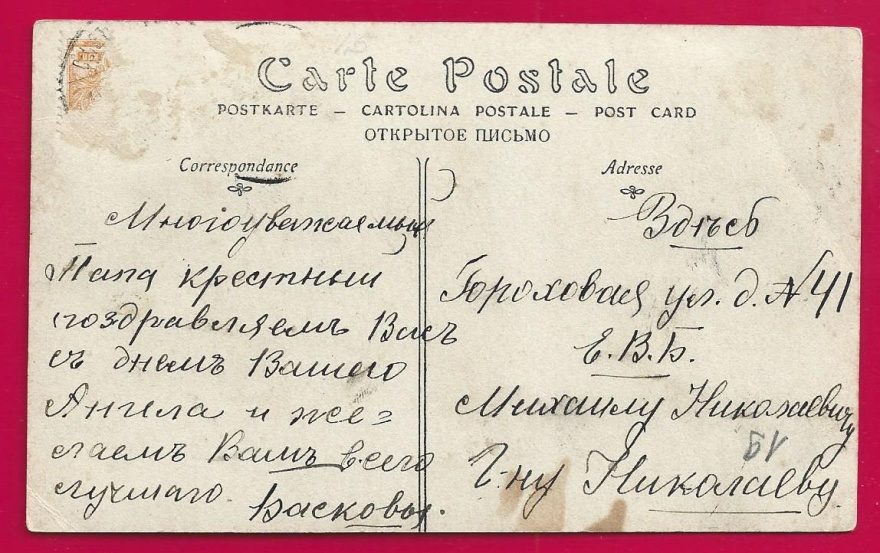 Carte Postale
POSTKARTE — CARTOLINA POSTALE — POST CARD
ОТКРЫТОЕ ПИСЬМО
Correspondance
Многоуважаемый
Папа крестный
поздравляемъ Васъ
съ днемъ Вашего
Ангела и же=
лаемъ Вамъ всего
лучшаго.
Басковы.
Adresse
Здѣсь
Гороховая ул. д. № 41
Е. В. Б.
Михаилу Николаевичу
Г-ну Николаеву